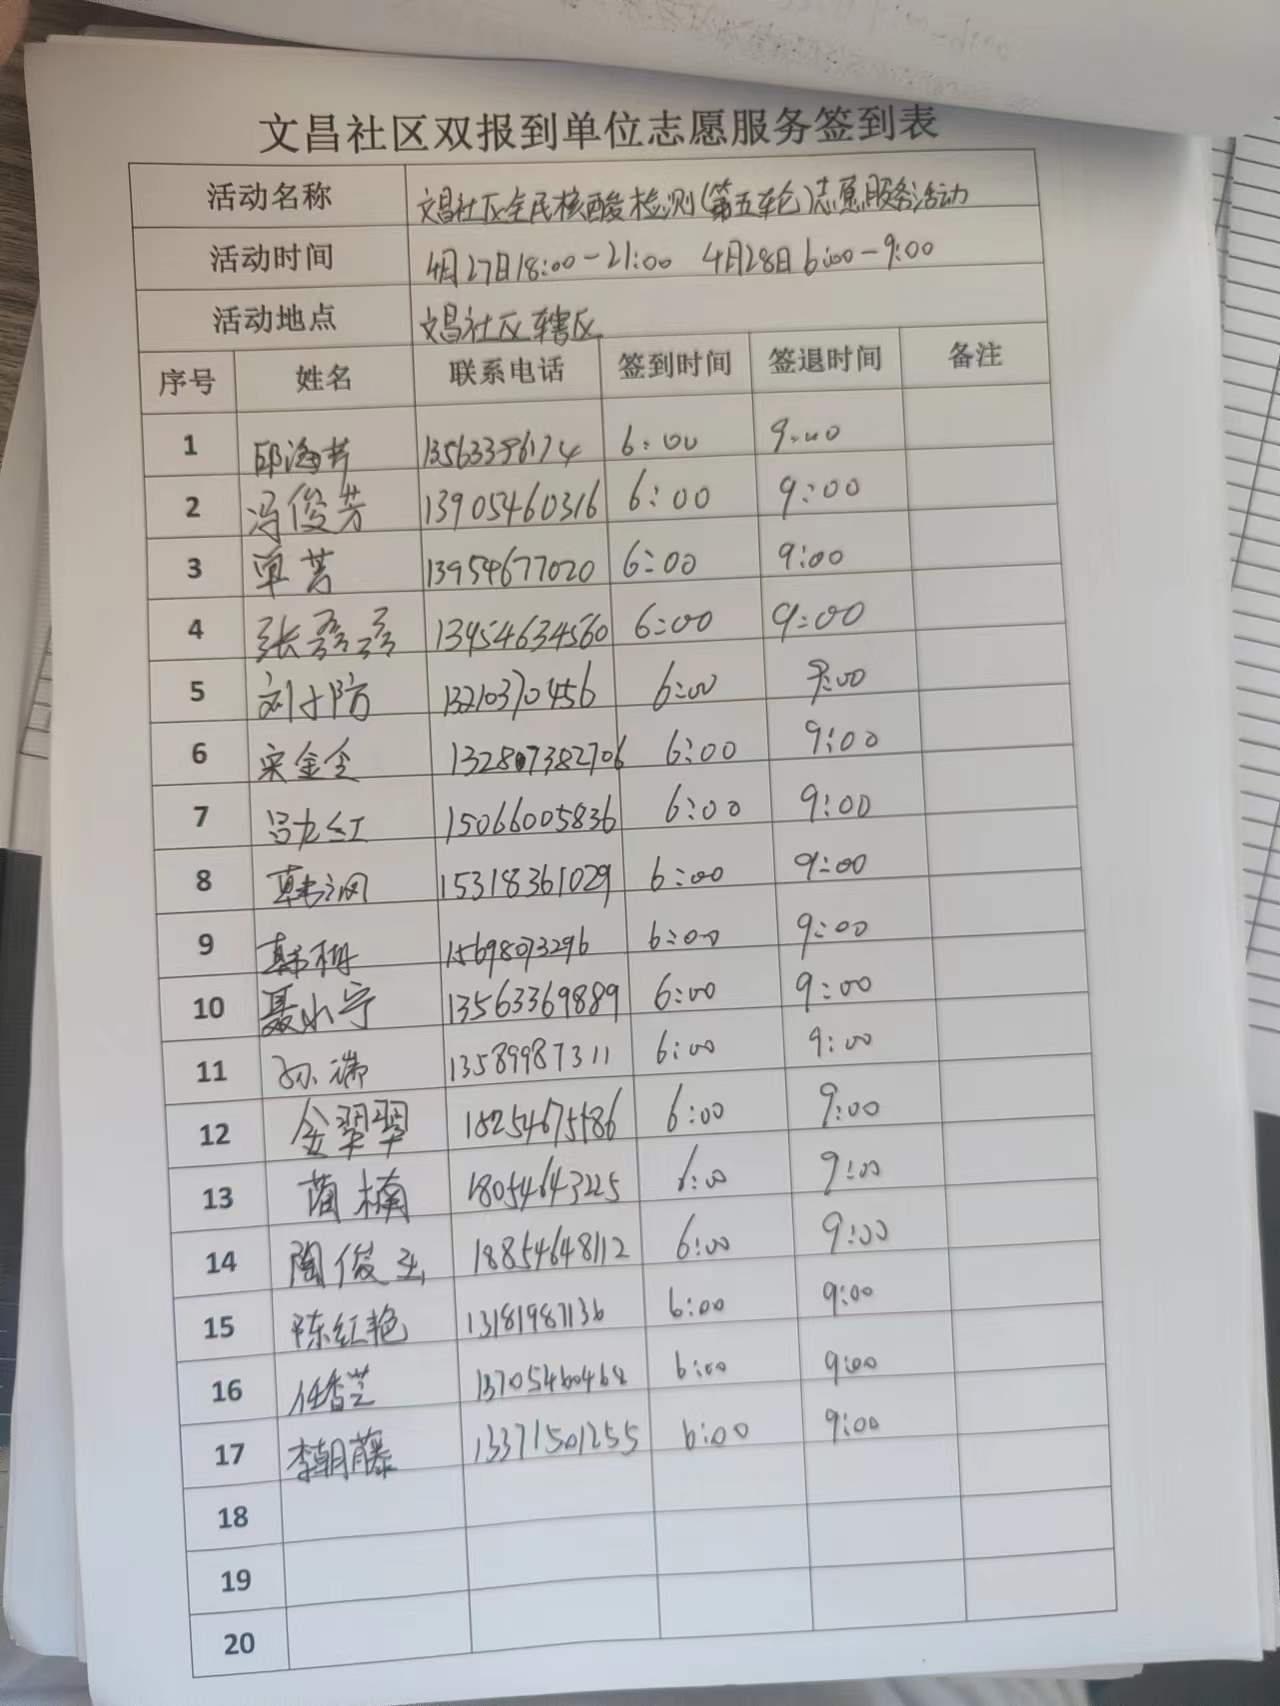 文昌社区双报到单位志愿服务签到表
活动名称 文昌社区全民核酸检测(第五轮)志愿服务活动
活动时间 4月27日18:00-21:00 4月28日6:00-9:00
活动地点 文昌社区辖区
序号 姓名 联系电话 签到时间 签退时间 备注
1 邱海 6:00 9:00
2 冯俊芳 13905460316 6:00 9:00
3 单芳 13954677020 6:00 9:00
4 张 13954634560 6:00 9:00
5 刘 13210370456 6:00 9:00
6 宋金 6:00 9:00
7 红 15066005836 6:00 9:00
8 韩 15318361029 6:00 9:00
9 韩 15698073296 6:00 9:00
10 聂小宁 13563369889 6:00 9:00
11 孙瑞 13589987311 6:00 9:00
12 金翠翠 18254675586 6:00 9:00
13 蔺楠 18054643225 6:00 9:00
14 陶俊 18854648112 6:00 9:00
15 陈红艳 13181987136 6:00 9:00
16 任香芝 13705460468 6:00 9:00
17 李朝藤 13371501255 6:00 9:00
18
19
20